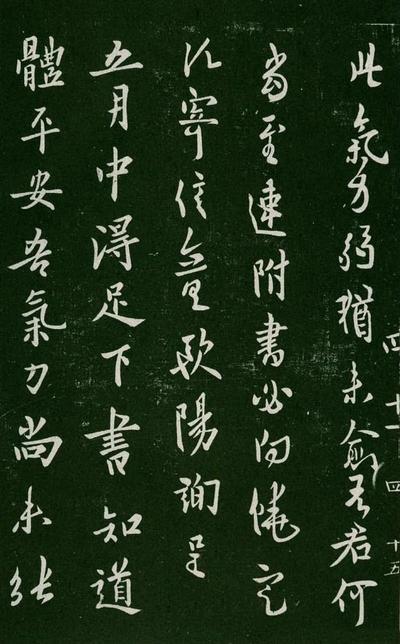 此氣力弱猶未愈吾君何
當至速附書必向饒定
信歐陽詢呈
五月中得足下書知道
體平安吾氣力尚未
四 十一 四 十五